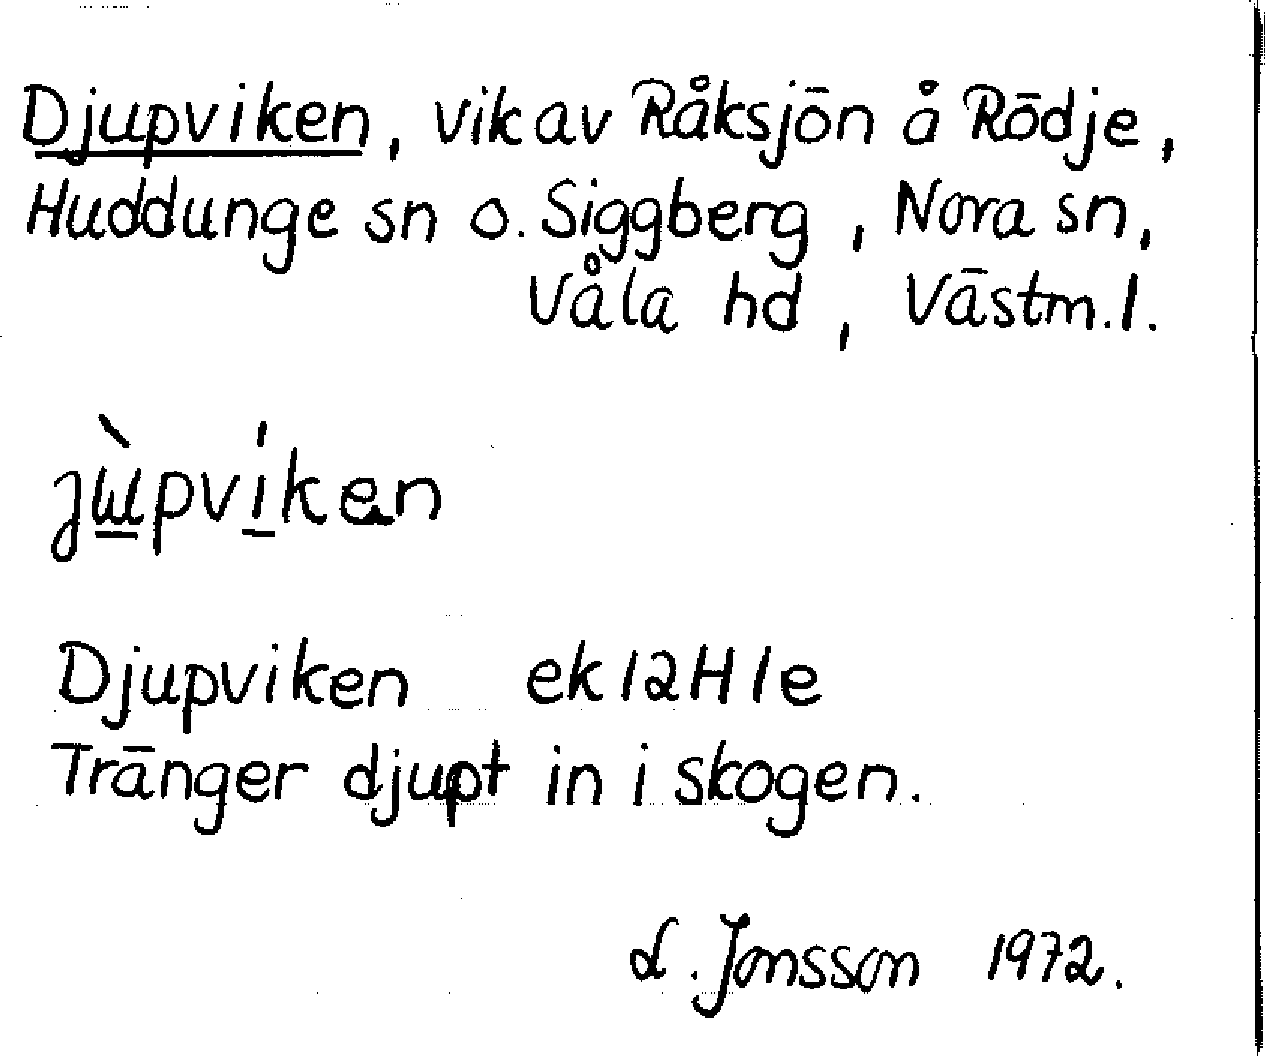 Djupviken, vik av Råksjön å Rödje,
Huddunge sn o. Siggberg, Nora sn,
Våla hd, Västm.l.
jùpvíken
Djupviken ek 12H1e
Tränger djupt in i skogen.
L. Jonsson 1972.